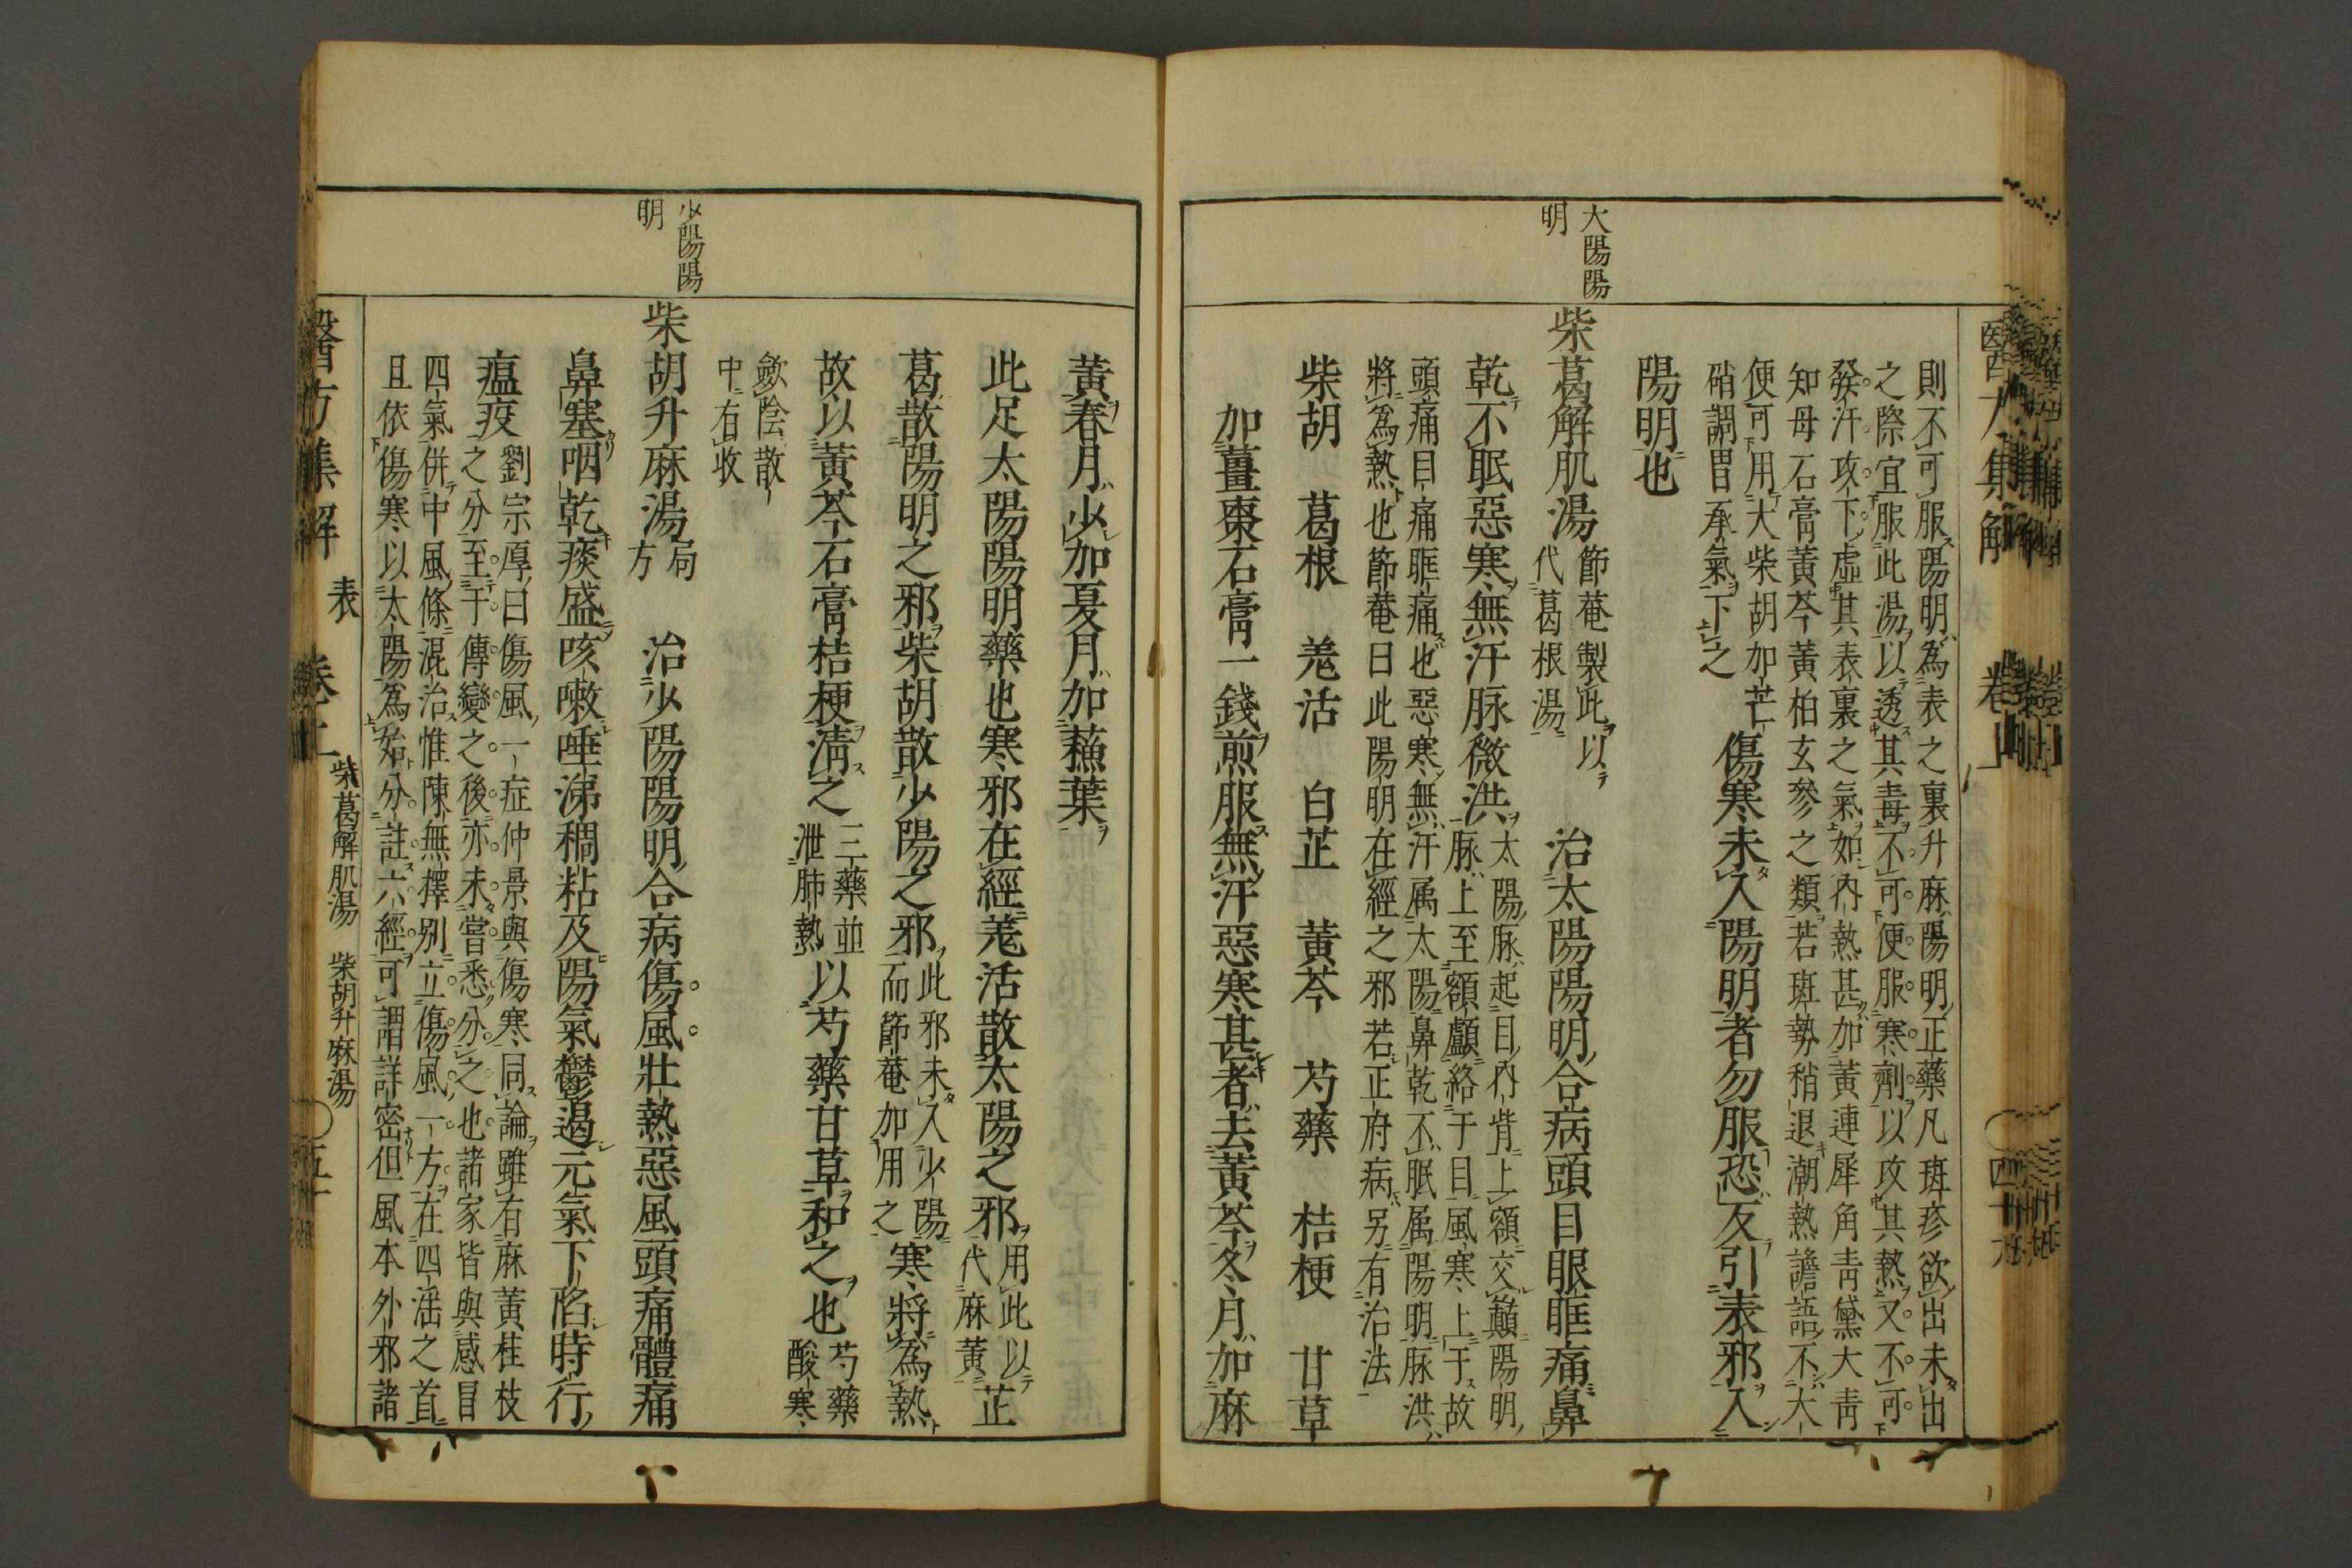 醫方集解
卷上
則不可服陽明為表之裏升麻陽明正藥凡斑疹欲出未出
之際宜服此湯以透其毒不可便服寒劑以攻其熱又不可
發汗攻下虛其表裏之氣如內熱甚加黃連犀角青黛大青
知母石膏黃芩黃柏玄參之類若斑勢稍退潮熱譫語不大
便可用大柴胡加芒
硝調胃承氣下之
傷寒未入陽明者勿服恐反引表邪入
陽明也
大陽陽
明
柴葛解肌湯
節菴製此以
代葛根湯
治太陽陽明合病頭目眼眶痛鼻
乾不眠惡寒無汗脉微洪
太陽脉起目內眥上額交巔陽明
脉上至額顱絡于目風寒上于故
頭痛目痛眶痛也惡寒無汗属太陽鼻乾不眠属陽明脉洪
將為熱也節菴曰此陽明在經之邪若正府病另有治法
柴胡　葛根　羗活　白芷　黃芩　芍藥　桔梗　甘草
加薑棗石膏一錢煎服無汗惡寒甚者去黃芩冬月加麻
黃春月少加夏月加蘓葉
此足太陽陽明藥也寒邪在經羗活散太陽之邪
用此以
代麻黃
芷
葛散陽明之邪柴胡散少陽之邪
此邪未入少陽
而節菴加用之
寒將為熱
故以黃芩石膏桔梗清之
三藥並
泄肺熱
以芍藥甘草和之也
芍藥
酸寒
歛陰散
中有收
少陽陽
明
柴胡升麻湯
局
方
治少陽陽明合病傷風壯熱惡風頭痛體痛
鼻塞咽乾痰盛咳嗽唾涕稠粘及陽氣鬱遏元氣下陷時行
瘟疫
劉宗厚曰傷風一症仲景與傷寒同論雖有麻黃桂枝
之分至于傳變之後亦未嘗悉分之也諸家皆與感冒
四氣併中風條混治惟陳無擇别立傷風一方在四淫之首
且依傷寒以太陽為始分註六經可謂詳密但風本外邪諸
醫方集解
表
卷上
柴葛解肌湯　柴胡升麻湯
五十